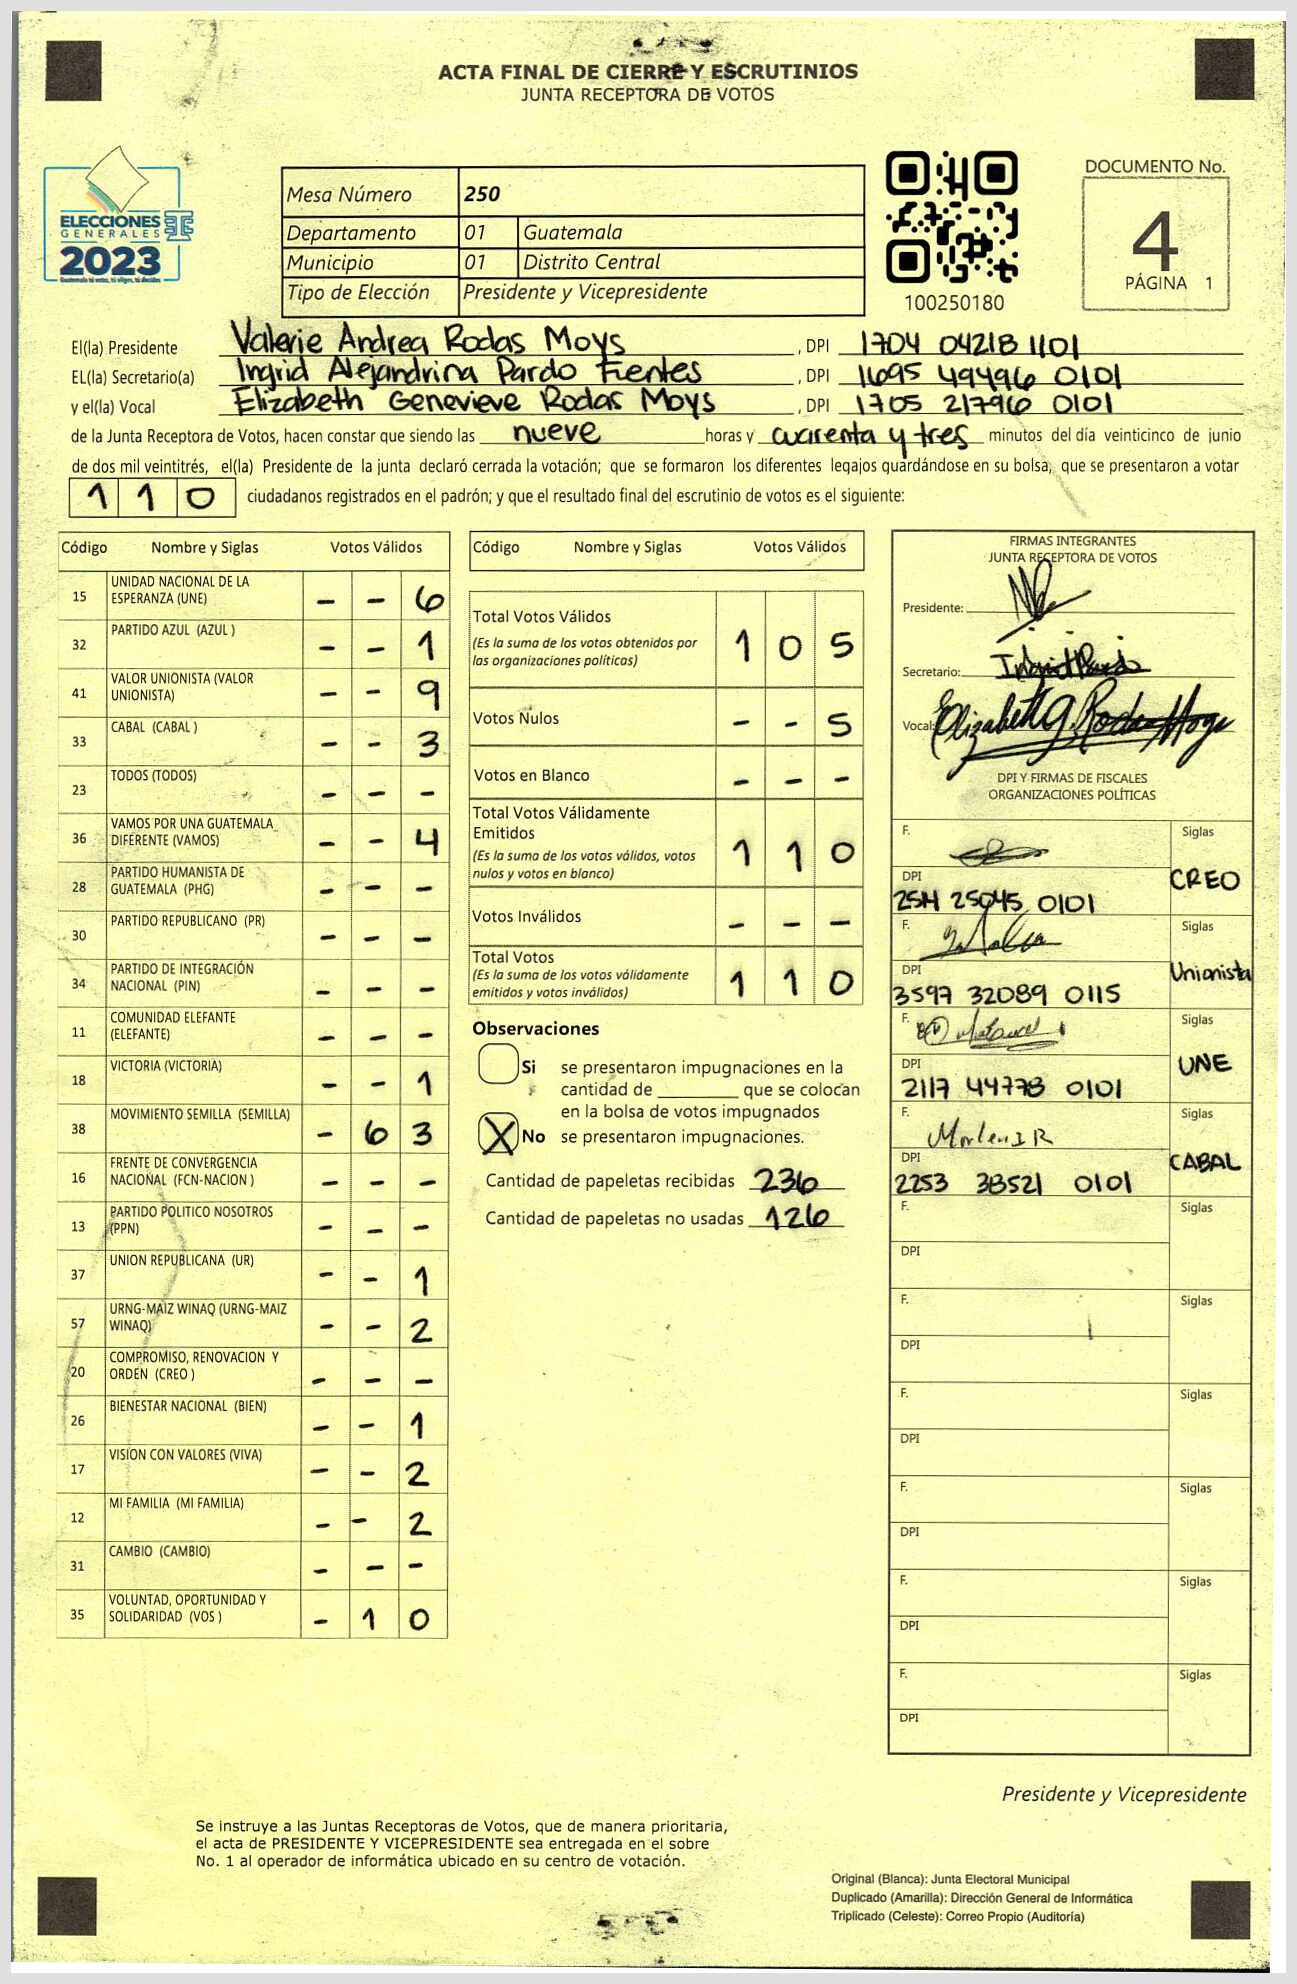 ACTA FINAL DE CIERRE Y ESCRUTINIOS
JUNTA RECEPTORA DE VOTOS
ELECCIONES
GENERALES
2023
Mesa Número 250
Departamento 01 Guatemala
Municipio 01 Distrito Central
Tipo de Elección Presidente y Vicepresidente
100250180
DOCUMENTO No.
4
PÁGINA 1
El(la) Presidente Valerie Andrea Rodas Moys, DPI 1704 04218 1101
EL(la) Secretario(a) Ingrid Alejandrina Pardo Fuentes, DPI 1695 49496 0101
y el(la) Vocal Elizabeth Genevieve Rodas Moys, DPI 1705 21796 0101
de la Junta Receptora de Votos, hacen constar que siendo las nueve horas y cuarenta y tres minutos del día veinticinco de junio
de dos mil veintitrés, el(la) Presidente de la junta declaró cerrada la votación; que se formaron los diferentes legajos guardándose en su bolsa, que se presentaron a votar
110 ciudadanos registrados en el padrón; y que el resultado final del escrutinio de votos es el siguiente:
Código Nombre y Siglas Votos Válidos
15 UNIDAD NACIONAL DE LA ESPERANZA (UNE) - - 6
32 PARTIDO AZUL (AZUL ) - - 1
41 VALOR UNIONISTA (VALOR UNIONISTA) - - 9
33 CABAL (CABAL ) - - 3
23 TODOS (TODOS) - - -
36 VAMOS POR UNA GUATEMALA DIFERENTE (VAMOS) - - 4
28 PARTIDO HUMANISTA DE GUATEMALA (PHG) - - -
30 PARTIDO REPUBLICANO (PR) - - -
34 PARTIDO DE INTEGRACIÓN NACIONAL (PIN) - - -
11 COMUNIDAD ELEFANTE (ELEFANTE) - - -
18 VICTORIA (VICTORIA) - - 1
38 MOVIMIENTO SEMILLA (SEMILLA) - 6 3
16 FRENTE DE CONVERGENCIA NACIONAL (FCN-NACION ) - - -
13 PARTIDO POLITICO NOSOTROS (PPN) - - -
37 UNION REPUBLICANA (UR) - - 1
57 URNG-MAIZ WINAQ (URNG-MAIZ WINAQ) - - 2
20 COMPROMISO, RENOVACION Y ORDEN (CREO ) - - -
26 BIENESTAR NACIONAL (BIEN) - - 1
17 VISION CON VALORES (VIVA) - - 2
12 MI FAMILIA (MI FAMILIA) - - 2
31 CAMBIO (CAMBIO) - - -
35 VOLUNTAD, OPORTUNIDAD Y SOLIDARIDAD (VOS ) - 1 0
Código Nombre y Siglas Votos Válidos
Total Votos Válidos 1 0 5
(Es la suma de los votos obtenidos por
las organizaciones políticas)
Votos Nulos - - 5
Votos en Blanco - - -
Total Votos Válidamente
Emitidos 1 1 0
(Es la suma de los votos válidos, votos
nulos y votos en blanco)
Votos Inválidos - - -
Total Votos 1 1 0
(Es la suma de los votos válidamente
emitidos y votos inválidos)
Observaciones
Si se presentaron impugnaciones en la
cantidad de ________ que se colocan
en la bolsa de votos impugnados
X No se presentaron impugnaciones.
Cantidad de papeletas recibidas 236
Cantidad de papeletas no usadas 126
FIRMAS INTEGRANTES
JUNTA RECEPTORA DE VOTOS
Presidente:
Secretario: Ingrid Pardo
Vocal: Elizabeth G. Rodas Moys
DPI Y FIRMAS DE FISCALES
ORGANIZACIONES POLÍTICAS
F. Siglas
CREO
DPI
25045 0101
F. Siglas
Unionista
DPI
3597 32089 0115
F. Siglas
UNE
DPI
2117 44778 0101
F. Siglas
CABAL
DPI
2253 38521 0101
F. Siglas
DPI
F. Siglas
DPI
F. Siglas
DPI
F. Siglas
DPI
F. Siglas
DPI
F. Siglas
DPI
Presidente y Vicepresidente
Se instruye a las Juntas Receptoras de Votos, que de manera prioritaria,
el acta de PRESIDENTE Y VICEPRESIDENTE sea entregada en el sobre
No. 1 al operador de informática ubicado en su centro de votación.
Original (Blanca): Junta Electoral Municipal
Duplicado (Amarilla): Dirección General de Informática
Triplicado (Celeste): Correo Propio (Auditoría)